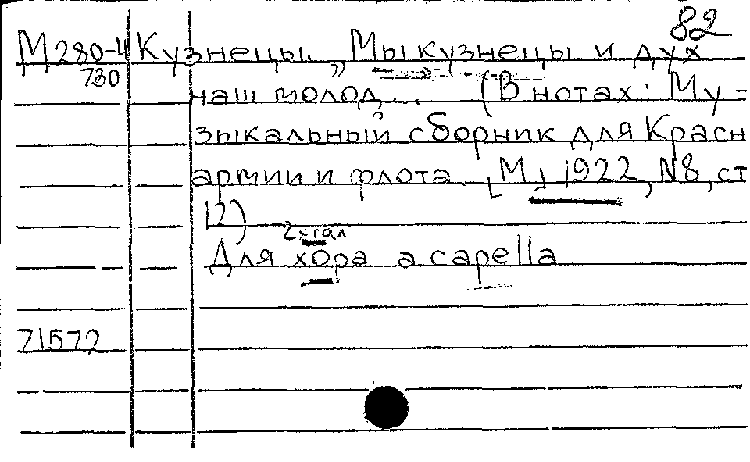 82
М280-4 Кузнецы. „Мы кузнецы и дух
730
наш молод... (В нотах: Му-
зыкальный сборник для Красн
армии и флота. [М], 1922, N8, ст
12)
Для хора a capella
71572